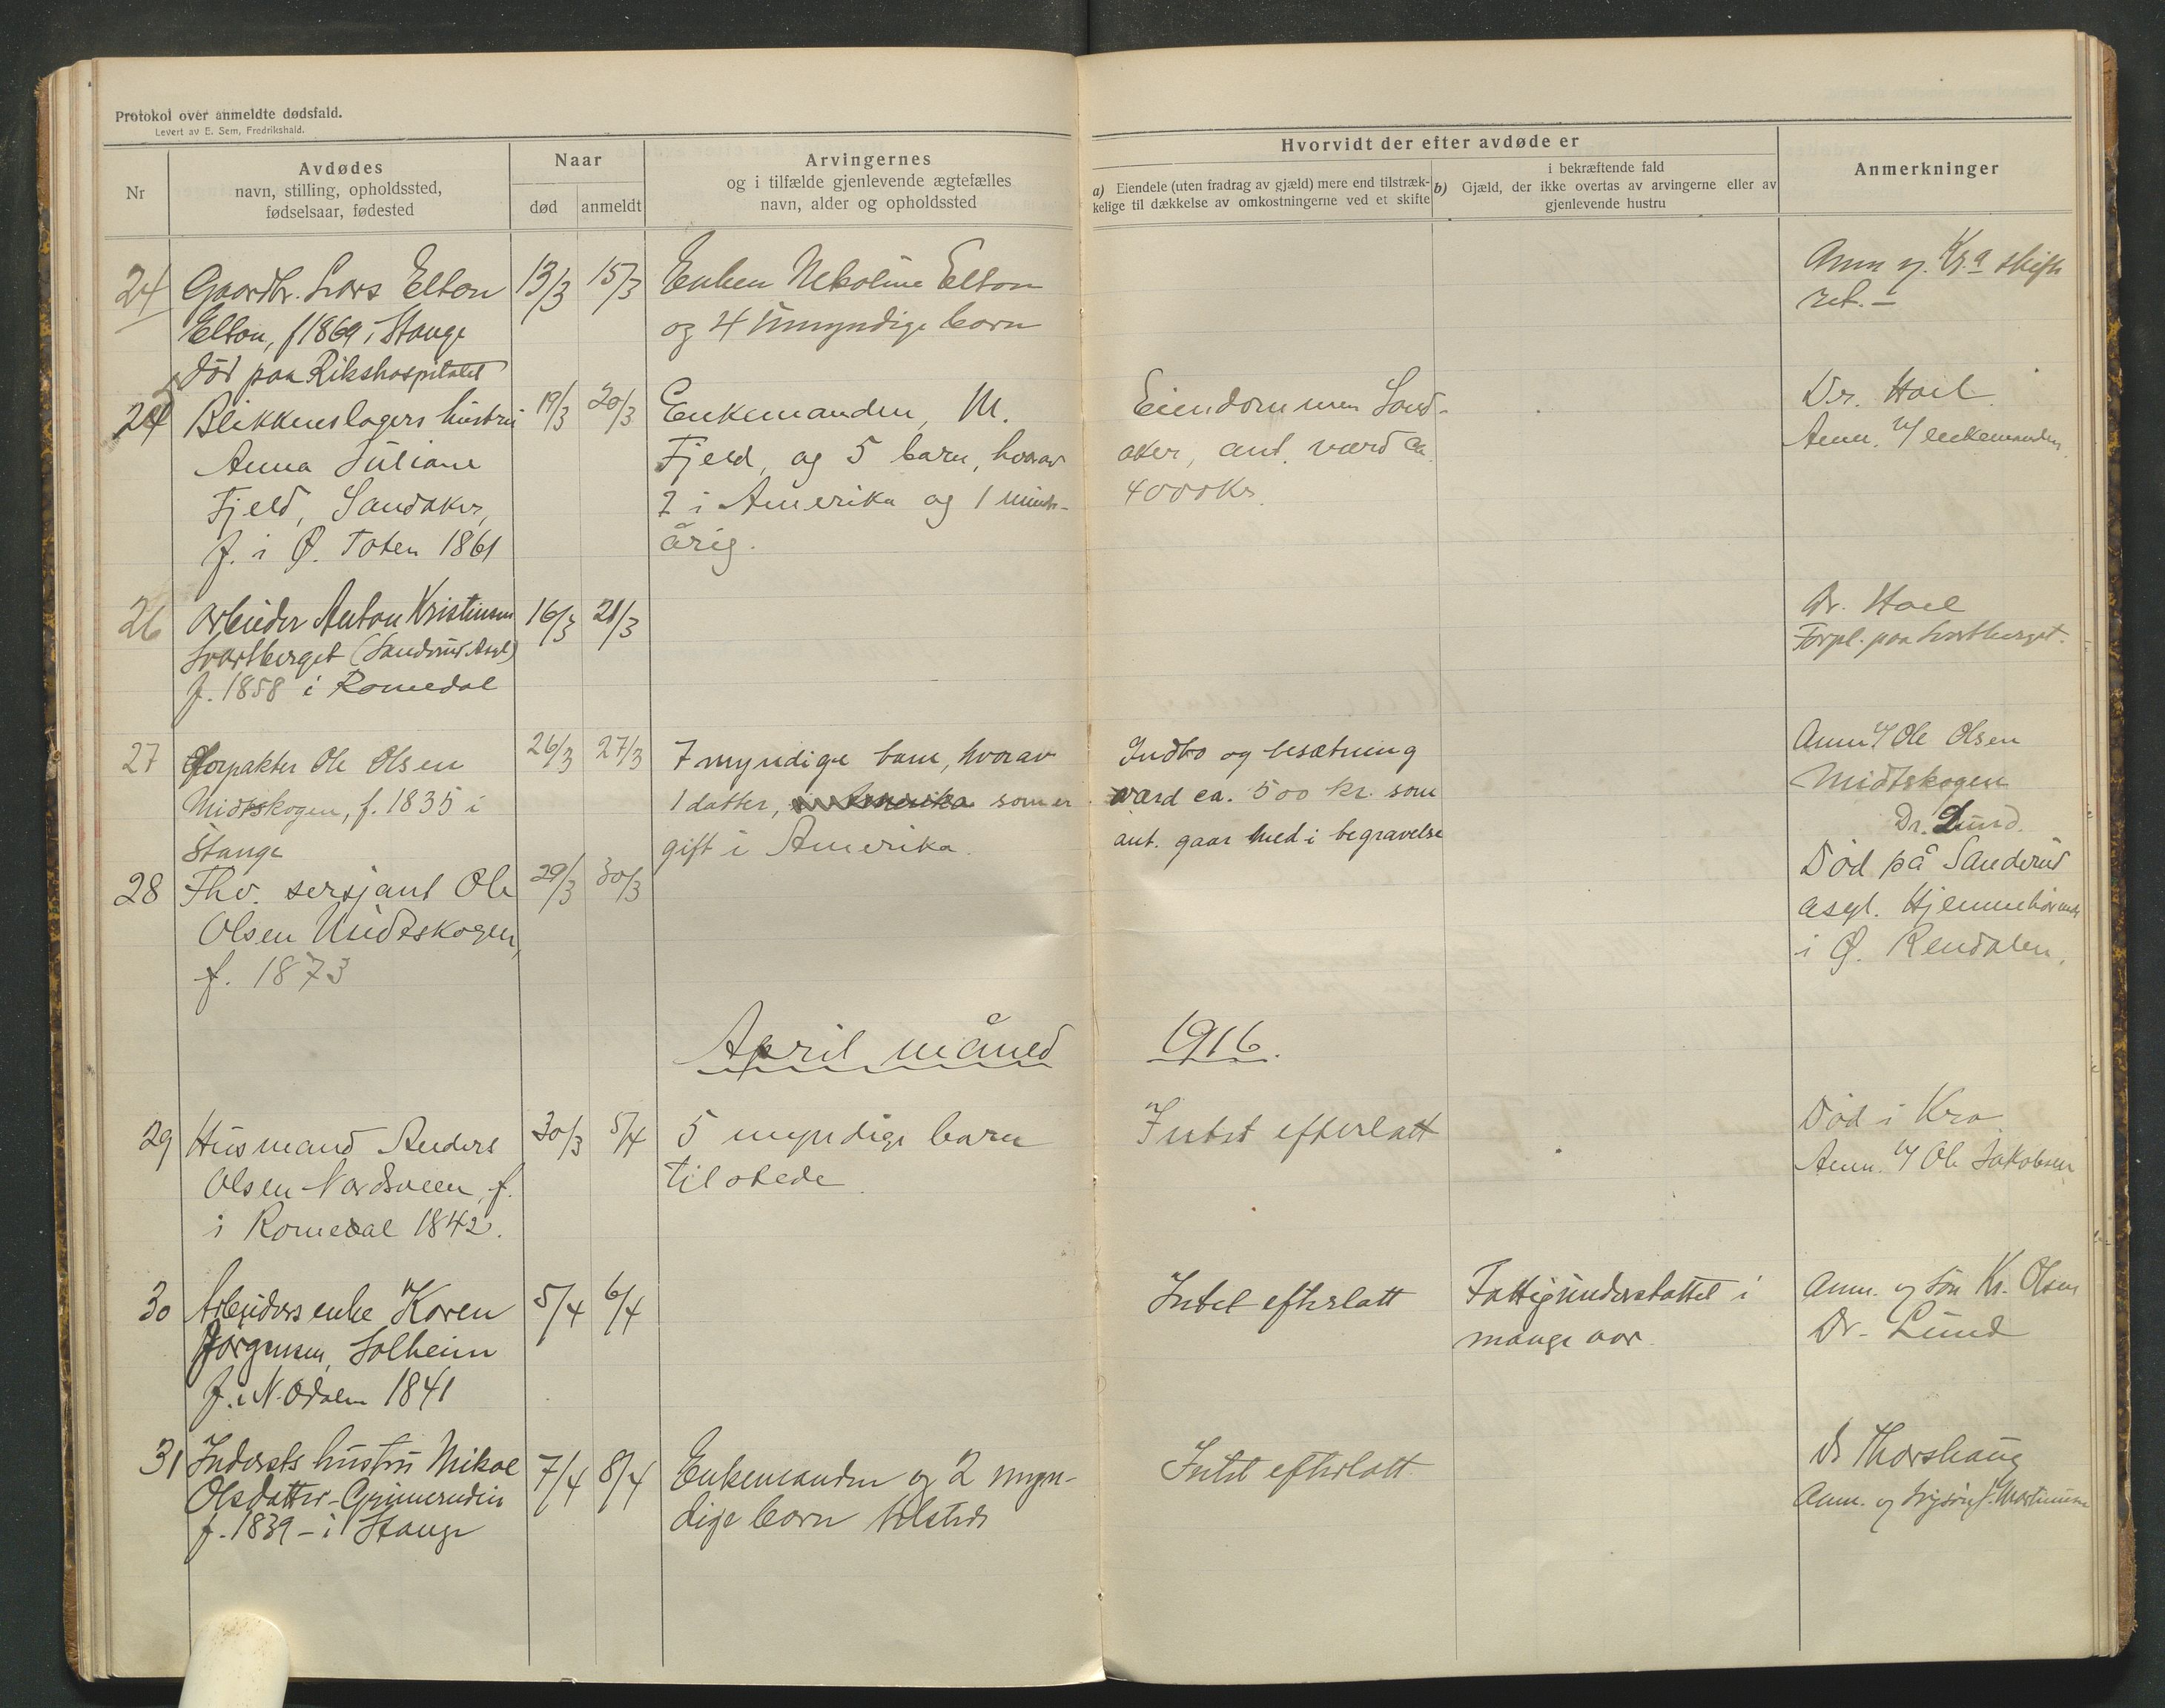 Protokol over anmeldte dødsfald.
Levert av E. Sem, Fredrikshald.
Nr
Avdødes
navn, stilling, opholdssted,
fødselsaar, fødested
Naar
død
anmeldt
Arvingernes
og i tilfælde gjenlevende ægtefælles
navn, alder og opholdssted
Hvorvidt der efter avdøde er
a) Eiendele (uten fradrag av gjæld) mere end tilstræk-
kelige til dækkelse av omkostningerne ved et skifte
i bekræftende fald
b) Gjæld, der ikke overtas av arvingerne eller av
gjenlevende hustru
Anmerkninger
24 Gaardbr. Lars Elton 13/3 15/3 Enken Elton
Elton, f 1869 i Stange og 4 umyndige barn
død paa Rikshospitalet
Anm av Kr.a skifte
ret.
Blikkenslagers hustru 19/3 20/3 Enkemanden, M.
Anna Juliane Fjeld, og 5 barn, hvorav
Fjeld, Sandaker, 2 i Amerika og 1 mindre-
f. i Ø. Toten 1861 årig.
Eiendommen Sand-
aker, ant. værd ca.
4000 Kr.
Dr. Hoel
Anm. v/ enkemanden
26 Arbeider Anton Kristiansen 16/3 21/3
Svartberget (Sanderud Asyl)
f. 1858 i Romedal
Dr. Hoel
Forpl. paa Svartberget.
27 Forpakter Ole Olsen 26/3 27/3 7 myndige barn, hvorav
Midtskogen, f. 1835 i 1 datter, i Amerika som er
Stange gift i Amerika.
Indbo og besætning
værd ca. 500 kr. som
ant. gaar med i begravelse
Anm v/ Ole Olsen
Midtskogen
Dr. Lund.
28 Fhv. sersjant Ole 29/3 30/3
Olsen Midtskogen,
f. 1873
Død på Sanderud
asyl. Hjemmehørende
i Ø. Rendalen.
April måned 1916.
29 Husmand Anders 30/3 5/4 5 myndige barn
Olsen Nordsveen, f. tilstede
i Romedal 1842.
Intet efterlatt
Død i Kra
Anm. v/ Ole Jakobsen
30 Arbeiders enke Karen 5/4 6/4
Jørgensen, Solheim
f. i N. Odalen 1841
Intet efterlatt
Fattigunderstøttet i
mange aar.
Anm. av søn Kr. Olsen
Dr. Lund
31 Indersts hustru Mikal 7/4 8/4 Enkemanden og 2 myn-
Olsdatter dige barn tilstede
f. 1839 - i Stange
Intet efterlatt
Dr Thorshaug
Anm. av Martinsen